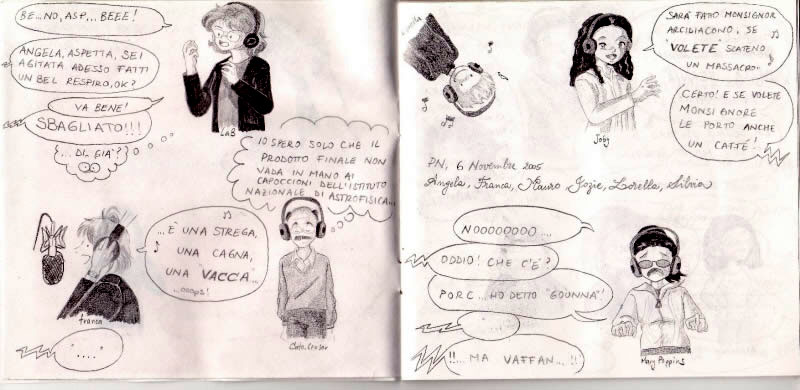 BE...NO, ASP... BEEE!
ANGELA, ASPETTA, SEI
AGITATA ADESSO FATTI
UN BEL RESPIRO, OK?
VA BENE!
SBAGLIATO!!!
(...DI GIÀ?)
LaB
IO SPERO SOLO CHE IL
PRODOTTO FINALE NON
VADA IN MANO AI
CAPOCCIONI DELL'ISTITUTO
NAZIONALE DI ASTROFISICA...
...È UNA STREGA,
UNA CAGNA,
UNA VACCA"...
...OOOPS!
franca
"...."
SARÀ FATTO MONSIGNOR
ARCIDIACONO, SE
"VOLETE" SCATENO
UN MASSACRO..
CERTO! E SE VOLETE
MONSIGNORE
LE PORTO ANCHE
UN CAFFÈ!
PN, 6 November 2005
Angela, Franca, Mauro Jozie, Lorella, Silvia
NOOOOOOOO....
ODDIO! CHE C'È?
PORC...HO DETTO "GOUNNA"!
"..."
!!... MA VAFFAN...!!
Mary Poppins